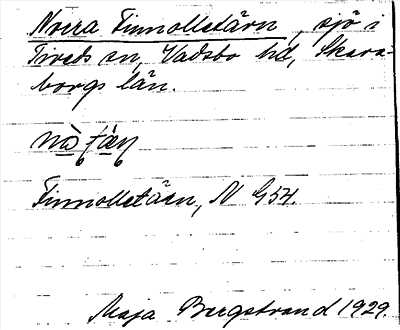 Norra Finnolletärn, sjö i
Tiveds sn, Vadsbo hd, Skara-
borgs län.
Finnolletärn, N G54.
Maja Bergstrand 1929.